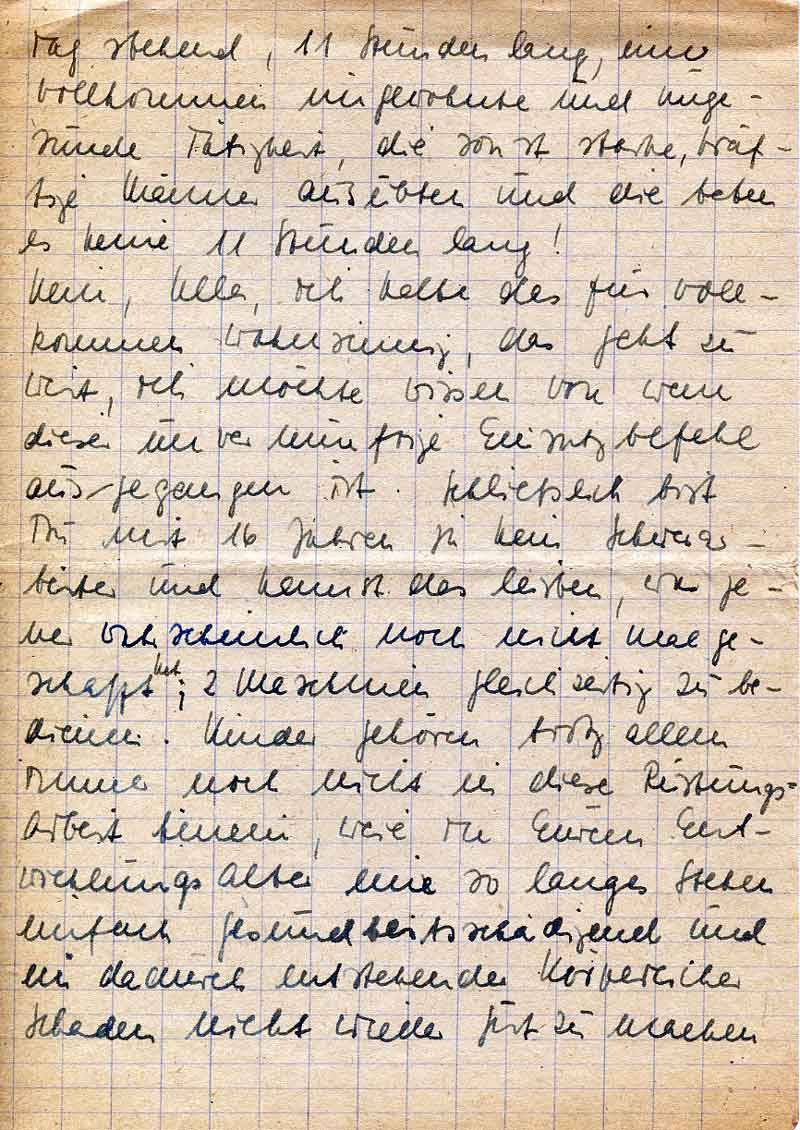 Tag stehend, 11 Stunden lang, eine
vollkommen ungewohnte und unge-
sunde Tätigkeit, die sonst starke, kräf-
tige Männer ausübten und die taten
es keine 11 Stunden lang!
Nein, ich halte das für voll-
kommen wahnsinnig, das geht zu
weit, ich möchte wissen von wem
dieser unvernünftige Einsatzbefehl
ausgegangen ist. Schließlich bist
Du mit 16 Jahren ja kein Schwerar-
beiter und kannst das leisten, was je-
ner wahrscheinlich noch nicht mal ge-
schafft hat; 2 Maschinen gleichzeitig zu be-
dienen. Kinder gehören trotz allem
immer noch nicht in diese Rüstungs-
arbeit hinein, weil in Eurem Ent-
wicklungsalter eine so langes Stehen
einfach gesundheitsschädigend und
ein dadurch entstehender Körperlicher
Schaden nicht wieder gut zu machen